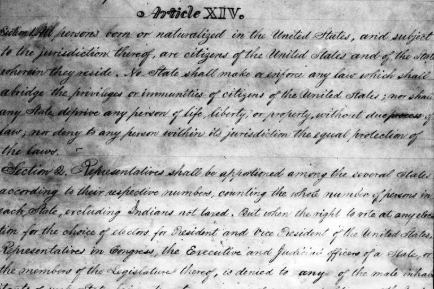 Article XIV.
Section 1. All persons born or naturalized in the United States, and subject
to the jurisdiction thereof, are citizens of the United States and of the State
wherein they reside. No State shall make or enforce any law which shall
abridge the privileges or immunities of citizens of the United States; nor shall
any State deprive any person of life, liberty, or property, without due process of
law; nor deny to any person within its jurisdiction the equal protection of
the laws.
Section 2. Representatives shall be apportioned among the several States
according to their respective numbers, counting the whole number of persons in
each State, excluding Indians not taxed. But when the right to vote at any elec-
tion for the choice of electors for President and Vice President of the United States,
Representatives in Congress, the Executive and Judicial officers of a State, or
the members of the Legislature thereof, is denied to any of the male inhab